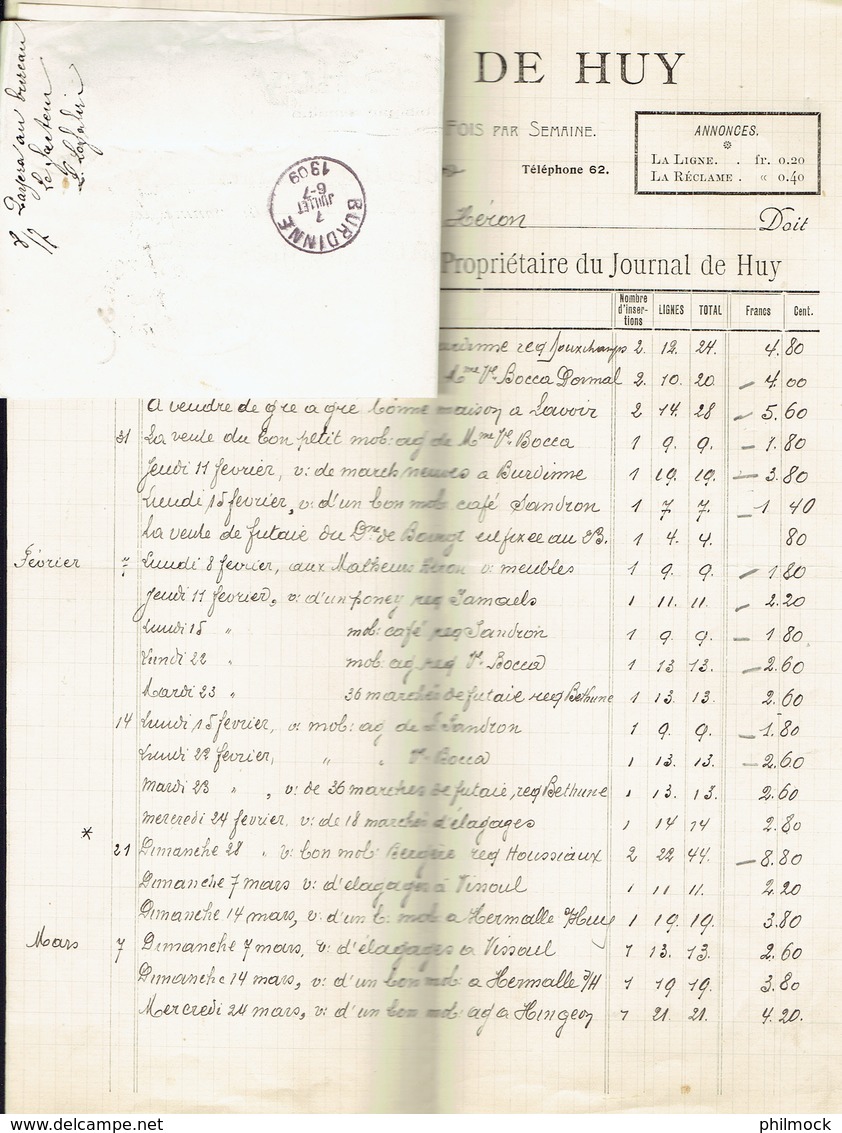 DE HUY
Fois par Semaine.
Téléphone 62.
ANNONCES.
La Ligne. . fr. 0.20
La Réclame . « 0.40
Héron Doit
Propriétaire du Journal de Huy
Passera au bureau
Le facteur
8/7
BURDINNE
7
JUILLET
6-7
1909
Nombre d'insertions LIGNES TOTAL Francs Cent.
req Jouxchamps 2. 12. 24. 4.80
Mme Ve Bocca Dormal 2. 10. 20 4 00
A vendre de gré à gré bonne maison à Lavoir 2 14. 28 5.60
31 La vente du bon petit mob: ag de Mme Ve Bocca 1 9. 9. 1.80
Jeudi 11 février, v: de march neuves à Burdinne 1 19. 19. 3.80
Lundi 15 février, v: d'un bon mob café Jandron 1 7 7. 1 40
La vente de futaie du Dne de est fixée au 1 4. 4. 80
Février 7 Lundi 8 février, aux Malheurs Héron v: meubles 1 9. 9. 1.80
Jeudi 11 février, v: d'un poney req Samaels 1 11. 11. 2.20
Lundi 15 " mob: café req Jandron 1 9 9. 1 80
Lundi 22 " mob: ag req Ve Bocca 1 13 13. 2.60
Mardi 23 " 36 marchés de futaie req Bethune 1 13. 13. 2.60
14 Lundi 15 février, v: mob: ag de Jandron 1 9. 9. 1.80
Lundi 22 février, " " Ve Bocca 1 13. 13. 2.60
Mardi 23 " , v: de 36 marchés de futaie, req Bethune 1 13. 13. 2.60
Mercredi 24 février, v: de 18 marchés d'élagages 1 14 14 2.80
*
21 Dimanche 28 " v: bon mob: Bergère req Houssiaux 2 22 44. 8.80
Dimanche 7 mars v: d'élagages à Vissoul 1 11 11. 2.20
Dimanche 14 mars, v: d'un b. mob à Hermalle s/Huy 1 19. 19. 3.80
Mars 7 Dimanche 7 mars, v: d'élagages à Vissoul 1 13. 13. 2.60
Dimanche 14 mars, v: d'un bon mob: à Hermalle s/H 1 19 19. 3.80
Mercredi 24 mars, v: d'un bon mob: ag à Hingeon 1 21. 21. 4.20.
philmock
delcampe.net